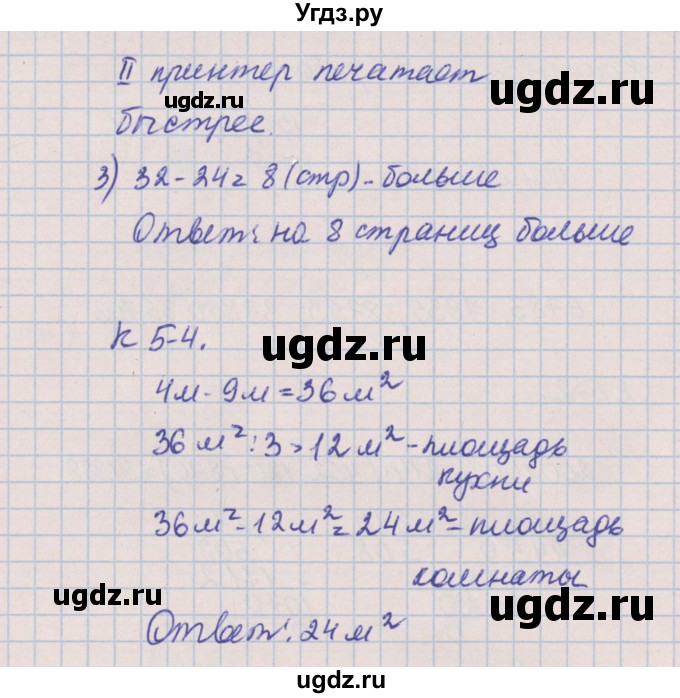 Угдз.ру
II принтер печатает
ugdz.ru
ugdz.ru
быстрее.
3) 32-24= 8 (стр)-больше
Ответ: на 8 страниц больше
ugdz.ru
К 5-4.
4м·9м=36м²
36м²:3=12м²-площадь
кухни
36м²-12м²=24м²-площадь
комнаты
ugdz.ru
ugdz.ru
Ответ: 24м²
ugdz.ru